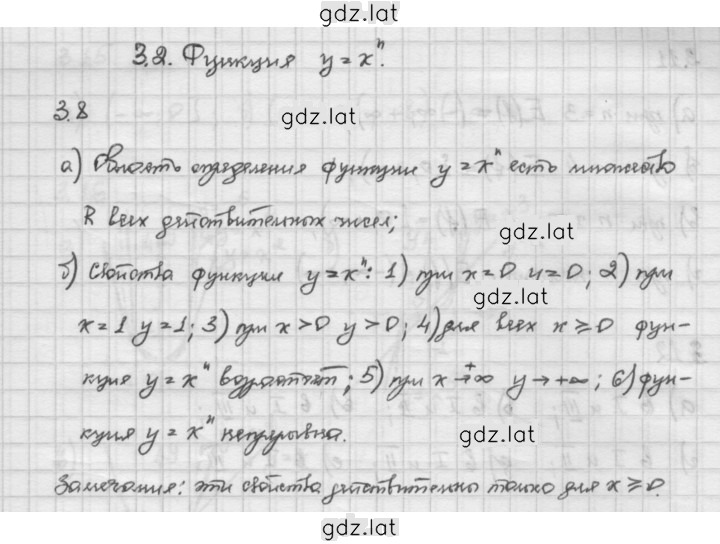 gdz.lat
3.2. Функция y = xⁿ.
3.8
gdz.lat
а) Область определения функции y = xⁿ есть множество
R всех действительных чисел;
gdz.lat
б) Свойства функции y = xⁿ: 1) при x = 0 y = 0; 2) при
gdz.lat
x = 1 y = 1; 3) при x > 0 y > 0; 4) для всех x ⩾ 0 фун-
кция y = xⁿ возрастает; 5) при x → +∞ y → +∞; 6) фун-
кция y = xⁿ непрерывна.
gdz.lat
Замечания: эти свойства действительны только для x ⩾ 0.
gdz.lat